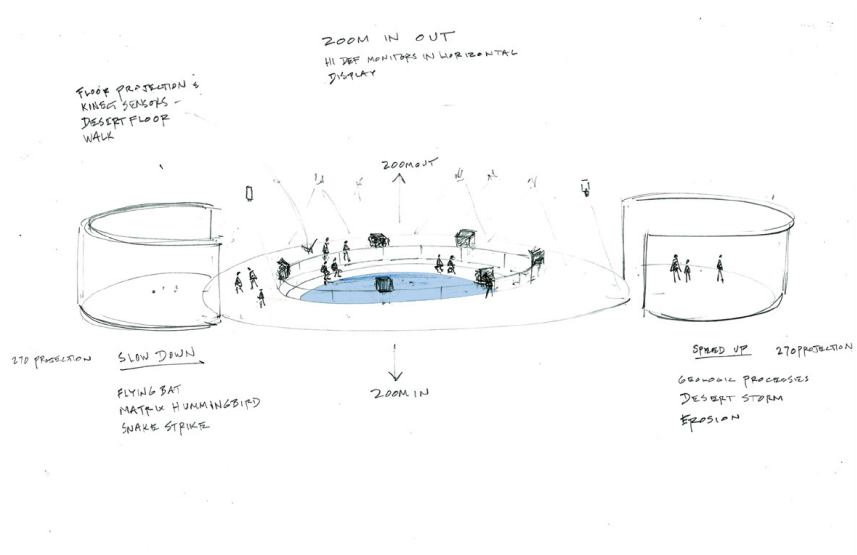 ZOOM IN OUT
HI DEF MONITORS IN HORIZONTAL
DISPLAY
FLOOR PROJECTION &
KINECT SENSORS -
DESERT FLOOR
WALK
ZOOM OUT
270 PROJECTION
SLOW DOWN
FLYING BAT
MATRIX HUMMINGBIRD
SNAKE STRIKE
ZOOM IN
SPEED UP
270 PROJECTION
GEOLOGIC PROCESSES
DESERT STORM
EROSION